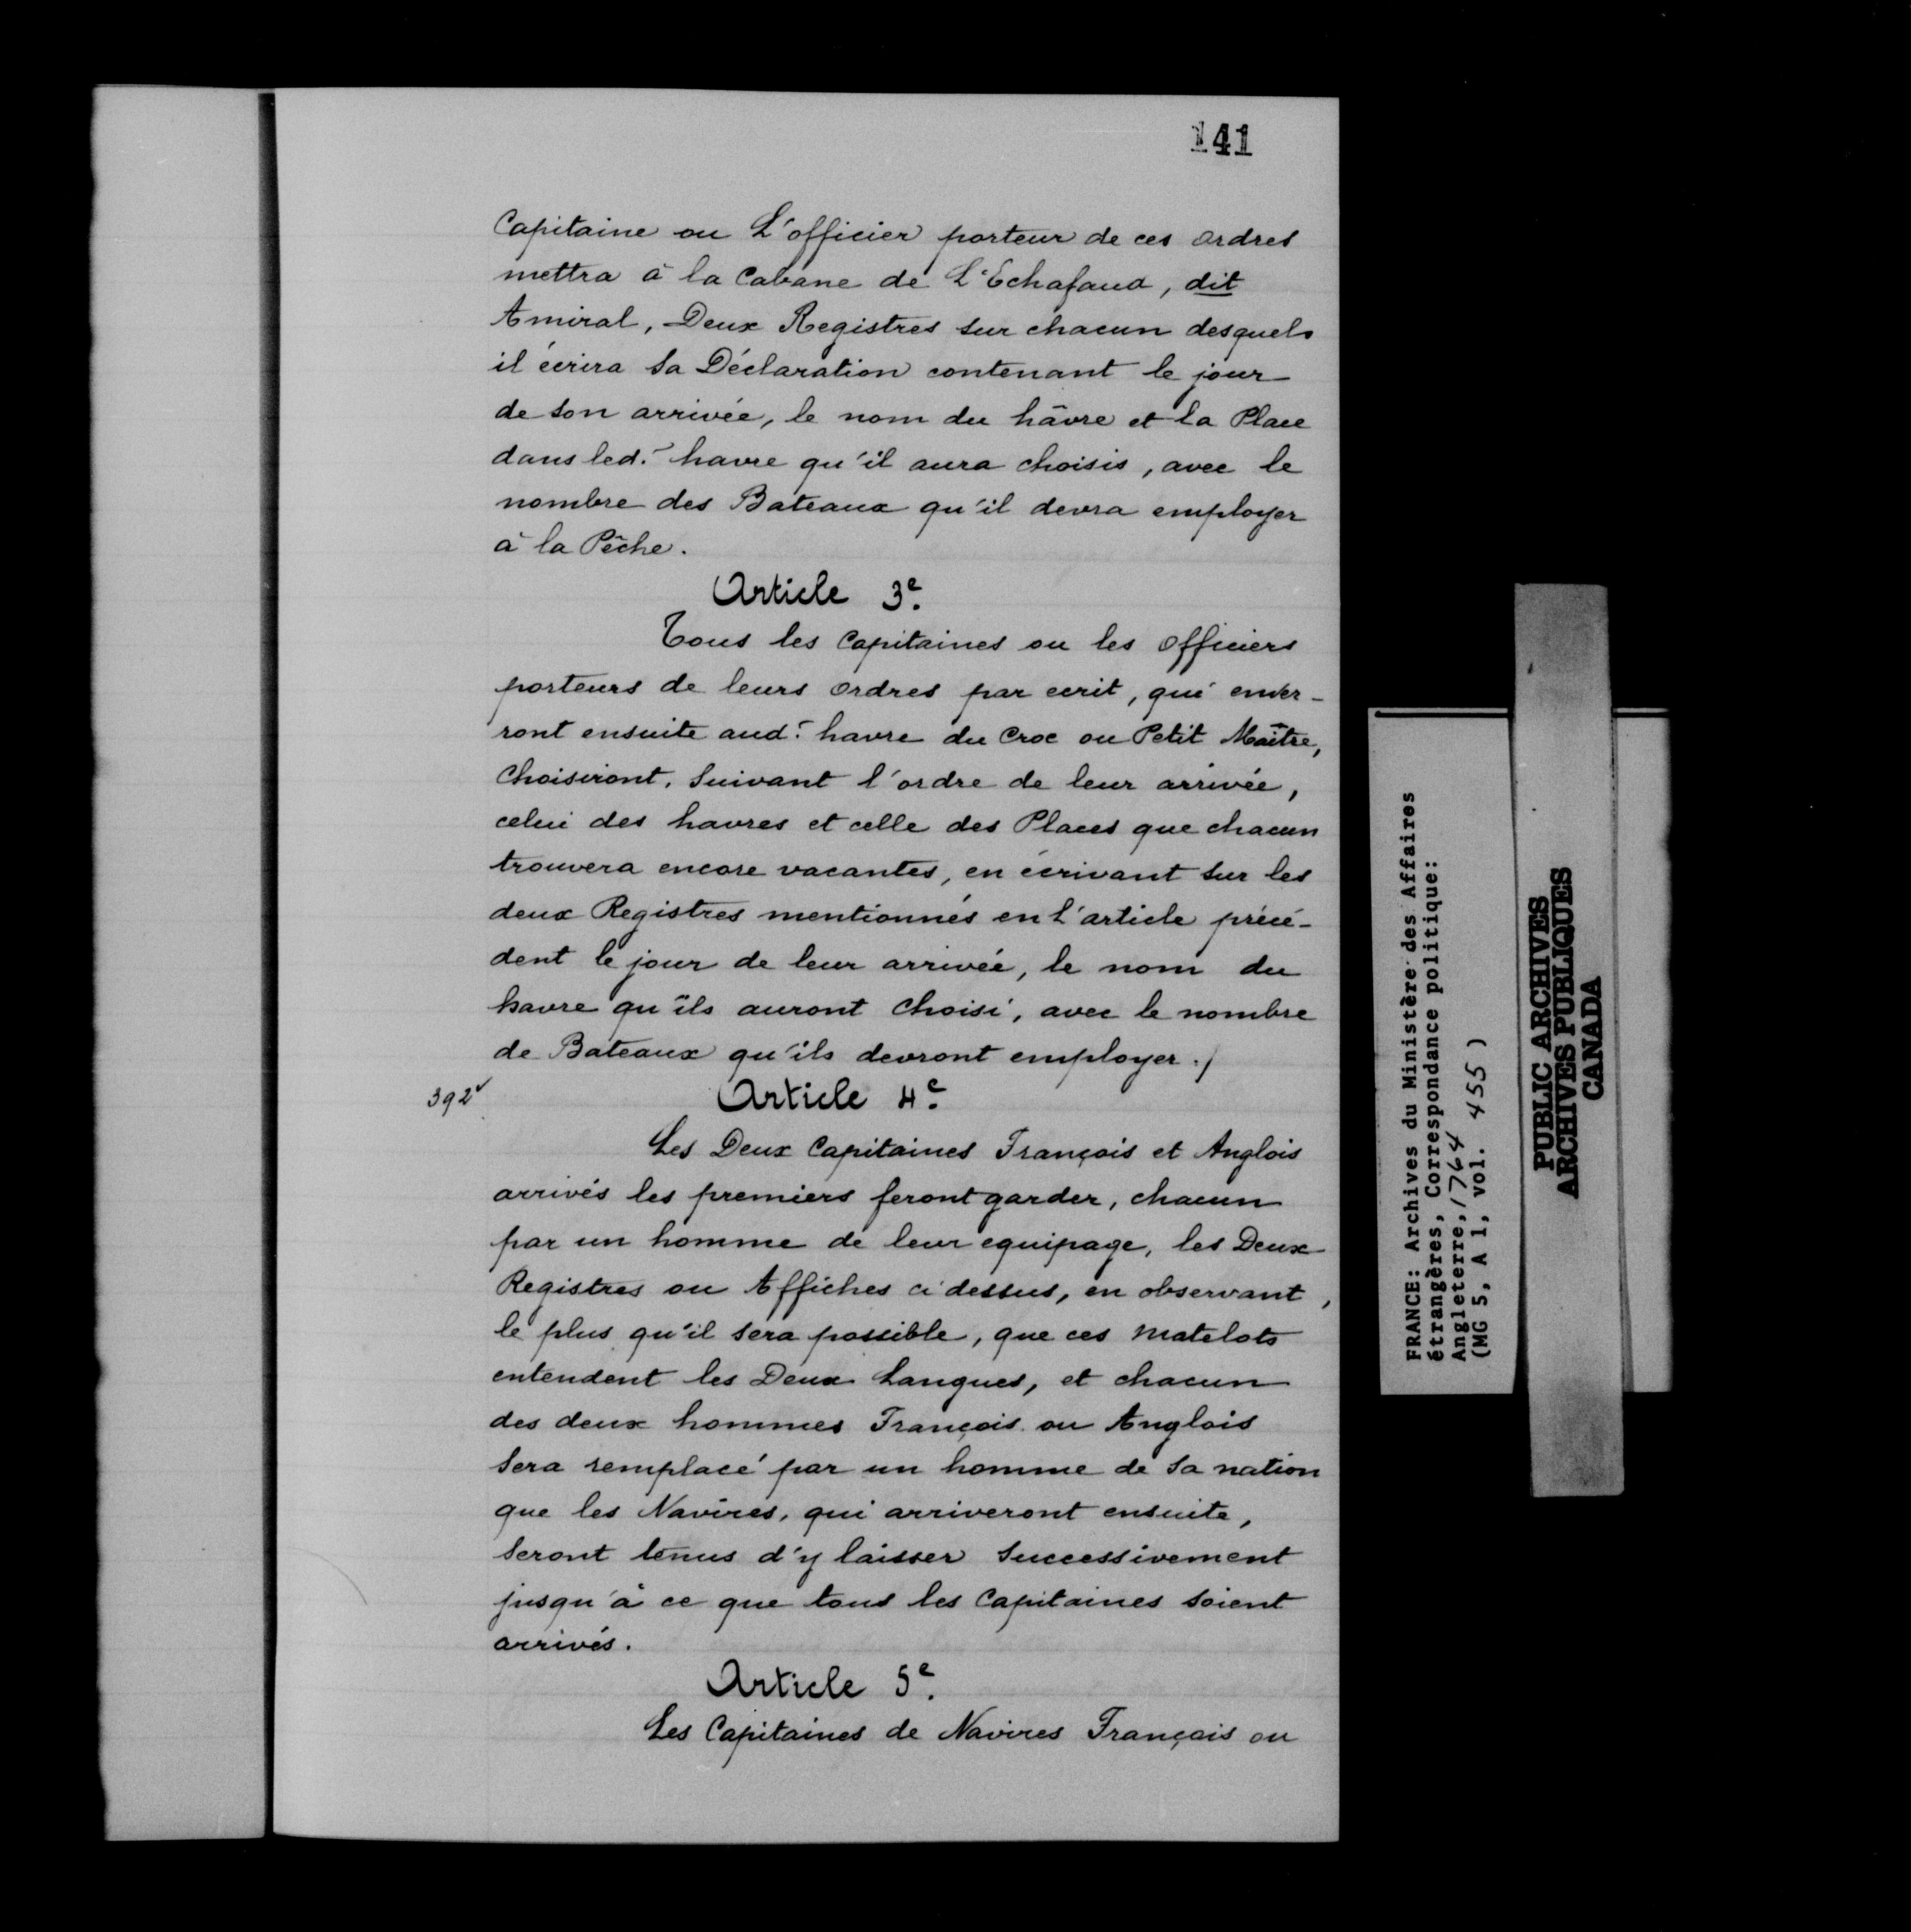 141
Capitaine ou L'officier porteur de ces ordres
mettra à la Cabane de L'Echafaud, dit
Amiral, Deux Registres sur chacun desquels
il écrira sa Déclaration contenant le jour
de son arrivée, le nom du hâvre et la Place
dans led. havre qu'il aura choisis, avec le
nombre des Bateaux qu'il devra employer
à la Pêche.
Article 3e.
Tous les Capitaines ou les officiers
porteurs de leurs ordres par ecrit, qui enver-
ront ensuite aud. havre du Croc ou Petit Maître,
Choisiront, suivant l'ordre de leur arrivée,
celui des havres et celle des Places que chacun
trouvera encore vacantes, en écrivant sur les
deux Registres mentionnés en l'article précé-
dent le jour de leur arrivée, le nom du
havre qu'ils auront choisi, avec le nombre
de Bateaux qu'ils devront employer./
392v
Article 4e.
Les Deux Capitaines François et Anglois
arrivés les premiers feront garder, chacun
par un homme de leur equipage, les Deux
Registres ou Affiches ci dessus, en observant,
le plus qu'il sera possible, que ces matelots
entendent les Deux Langues, et chacun
des deux hommes François ou Anglois
sera remplacé par un homme de sa nation
que les Navires, qui arriveront ensuite,
seront tenus d'y laisser successivement
jusqu'à ce que tous les Capitaines soient
arrivés.
Article 5e.
Les Capitaines de Navires Français ou
FRANCE: Archives du Ministère des Affaires
étrangères, Correspondance politique:
Angleterre, 1764
(MG 5, A 1, vol. 455)
PUBLIC ARCHIVES
ARCHIVES PUBLIQUES
CANADA